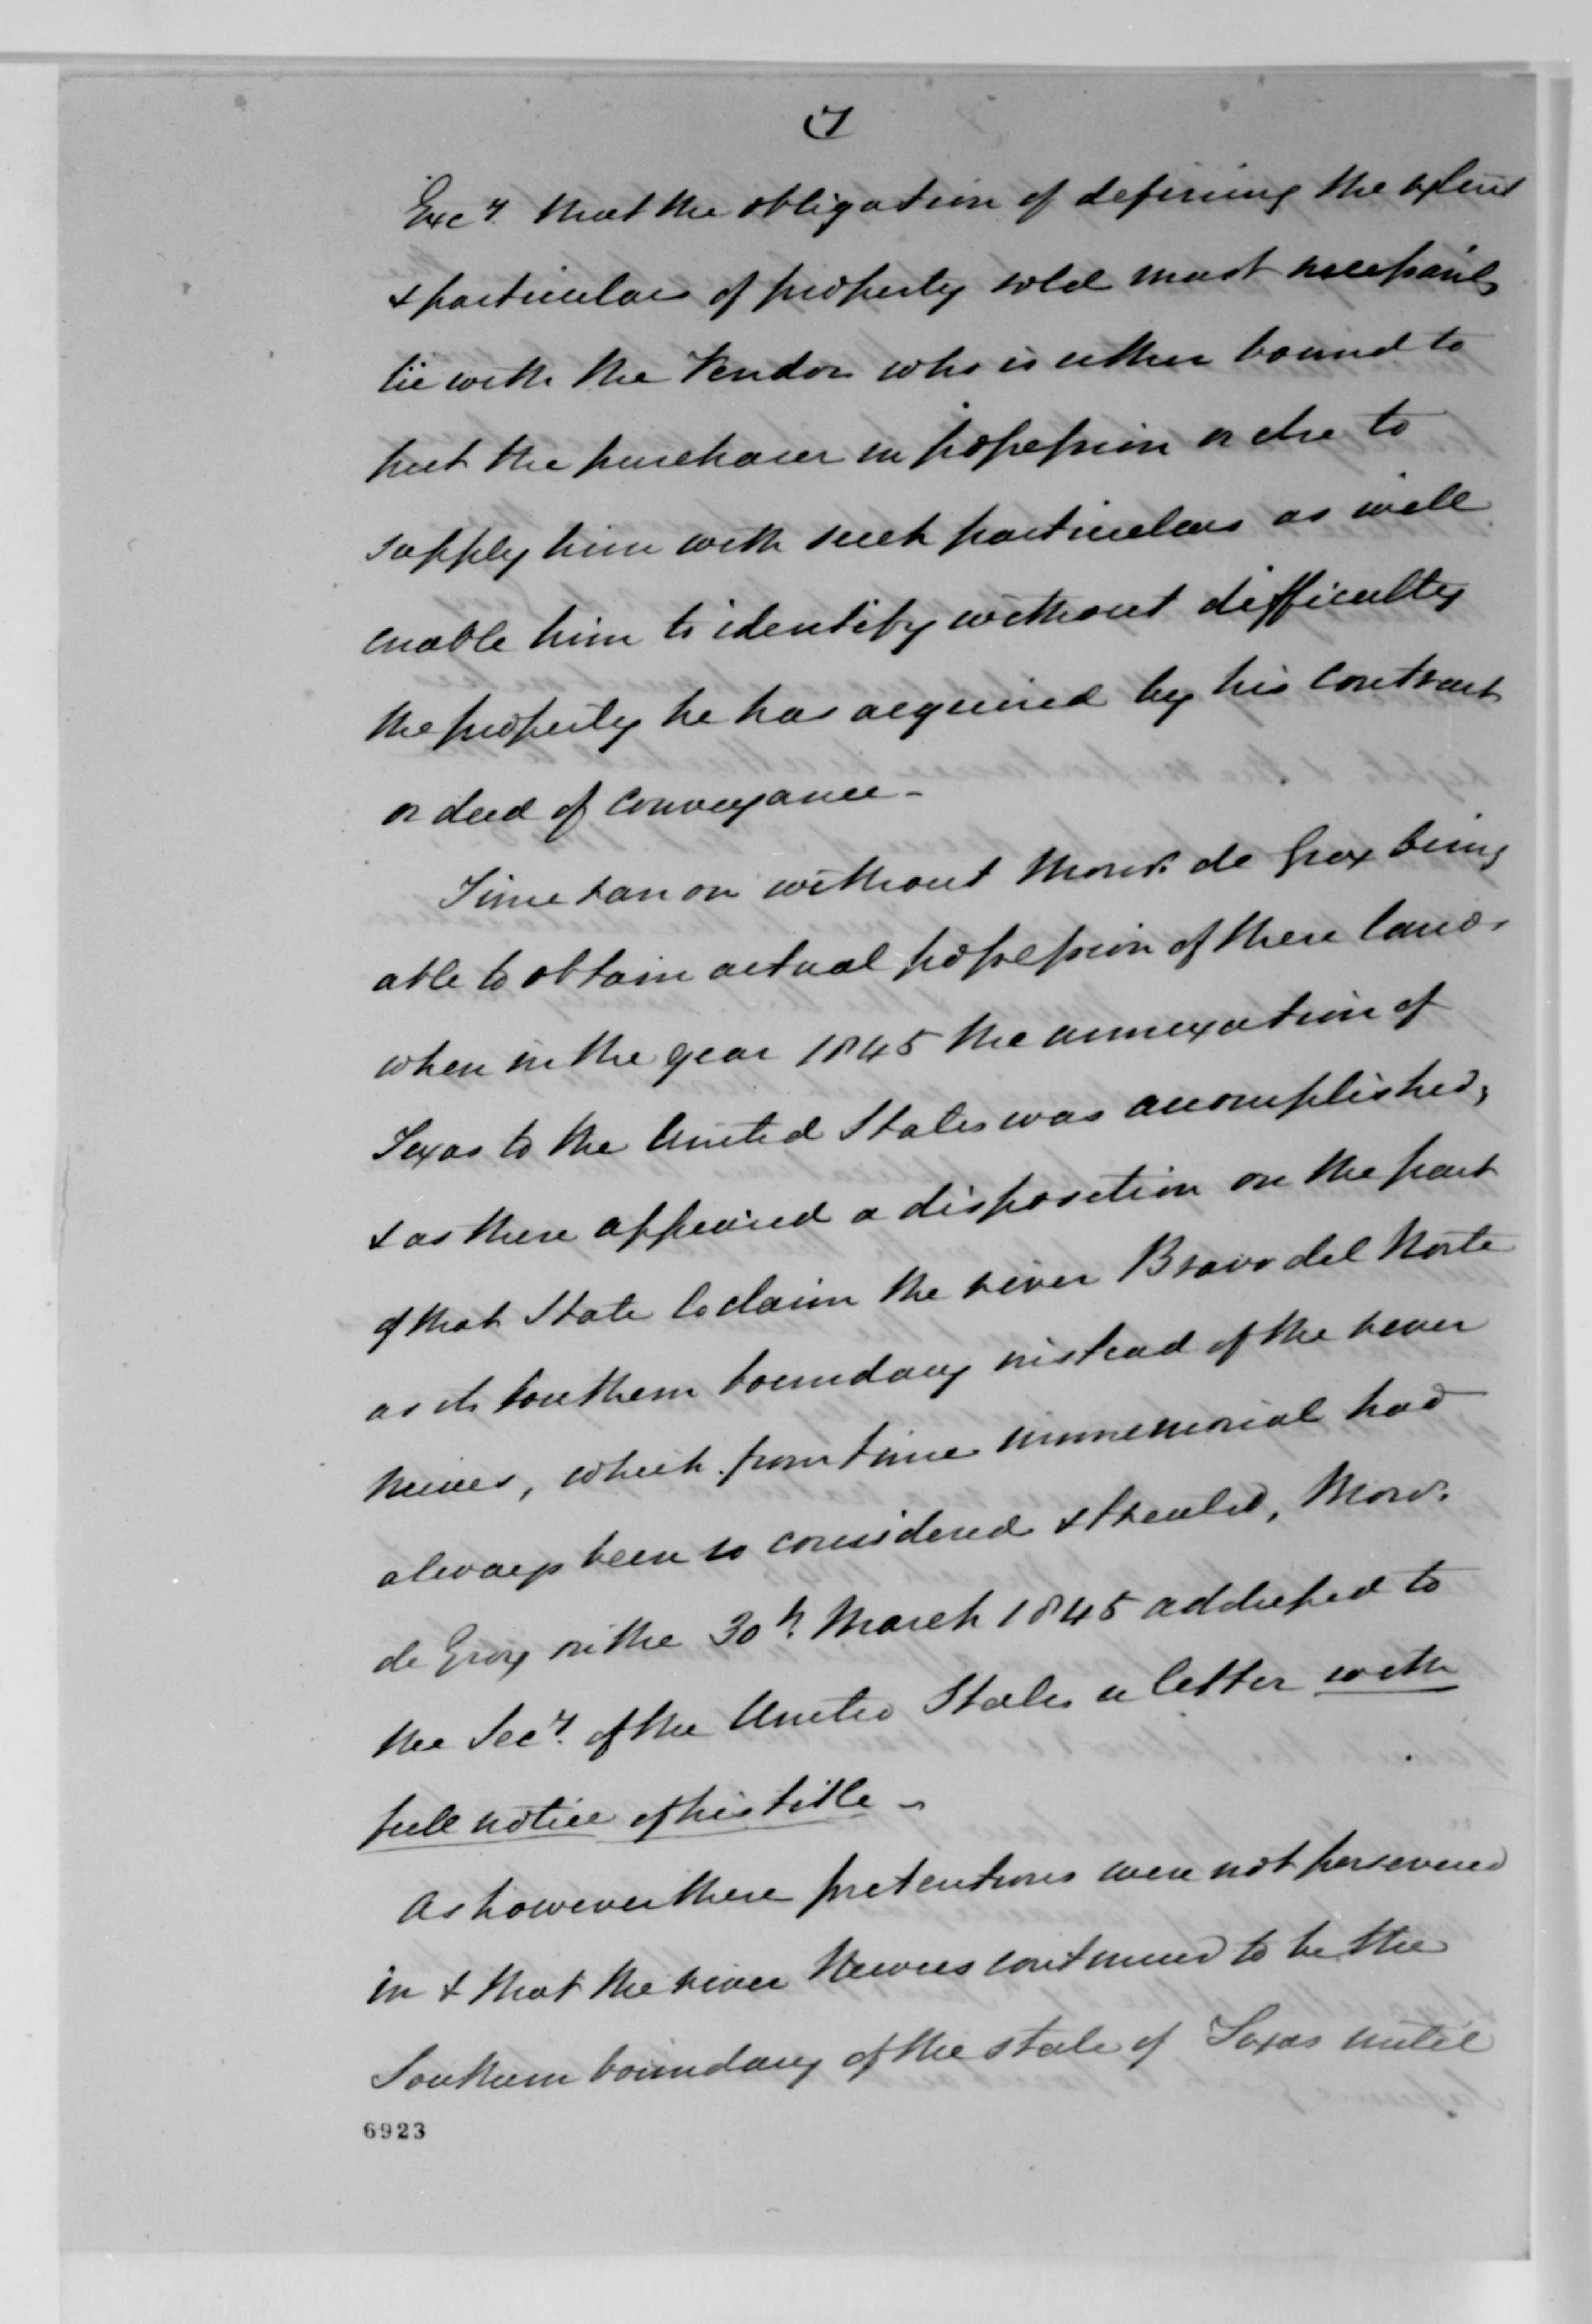 7
Excy. that the obligation of defining the extent
& particulars of property sold must necessarily
lie with the Vendor who is either bound to
put the purchaser in possession or else to
supply him with such particulars as will
enable him to identify without difficulty
the property he has acquired by his contract
or deed of conveyance -
Time ran on without Monsr. de Grox being
able to obtain actual possession of these lands
when in the year 1845 the annexation of
Texas to the United States was accomplished,
& as there appeared a disposition on the part
of that State to claim the river Bravo del Norte
as its Southern boundary instead of the river
Nueces, which from time immemorial had
always been so considered & treated, Monsr.
de Grox on the 30h. March 1845 addressed to
the Secy. of the United States a letter with
full notice of his title -
As however these pretentions were not persevered
in & that the river Nueces continued to be the
Southern boundary of the state of Texas until
6923